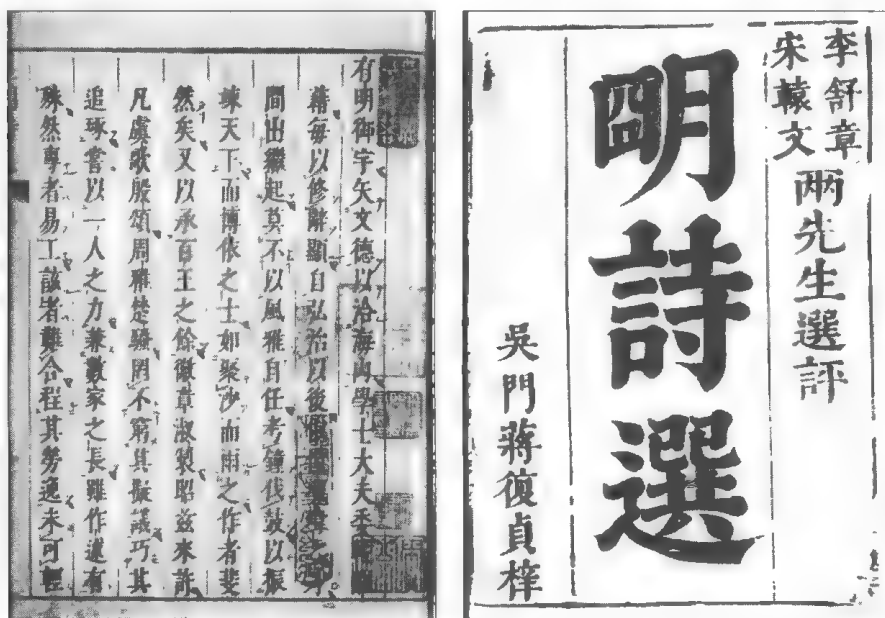 李舒章
宋轅文
兩先生選評
明詩選
吳門蔣復貞梓
有明御宇矢文德以洽海內學士大夫委
藉每以修辭顯自弘治以後
間出繼起莫不以風雅自任考鐘伐鼓以振
竦天下而博依之士如聚沙而雨之作者斐
然矣又以承百王之餘徽章淑製昭茲來許
凡虞歌殷頌周雅楚騷罔不窮其擬議巧其
追琢嘗以一人之力兼數家之長雖作述有
殊然專者易工該者難合程其勞逸未可輕